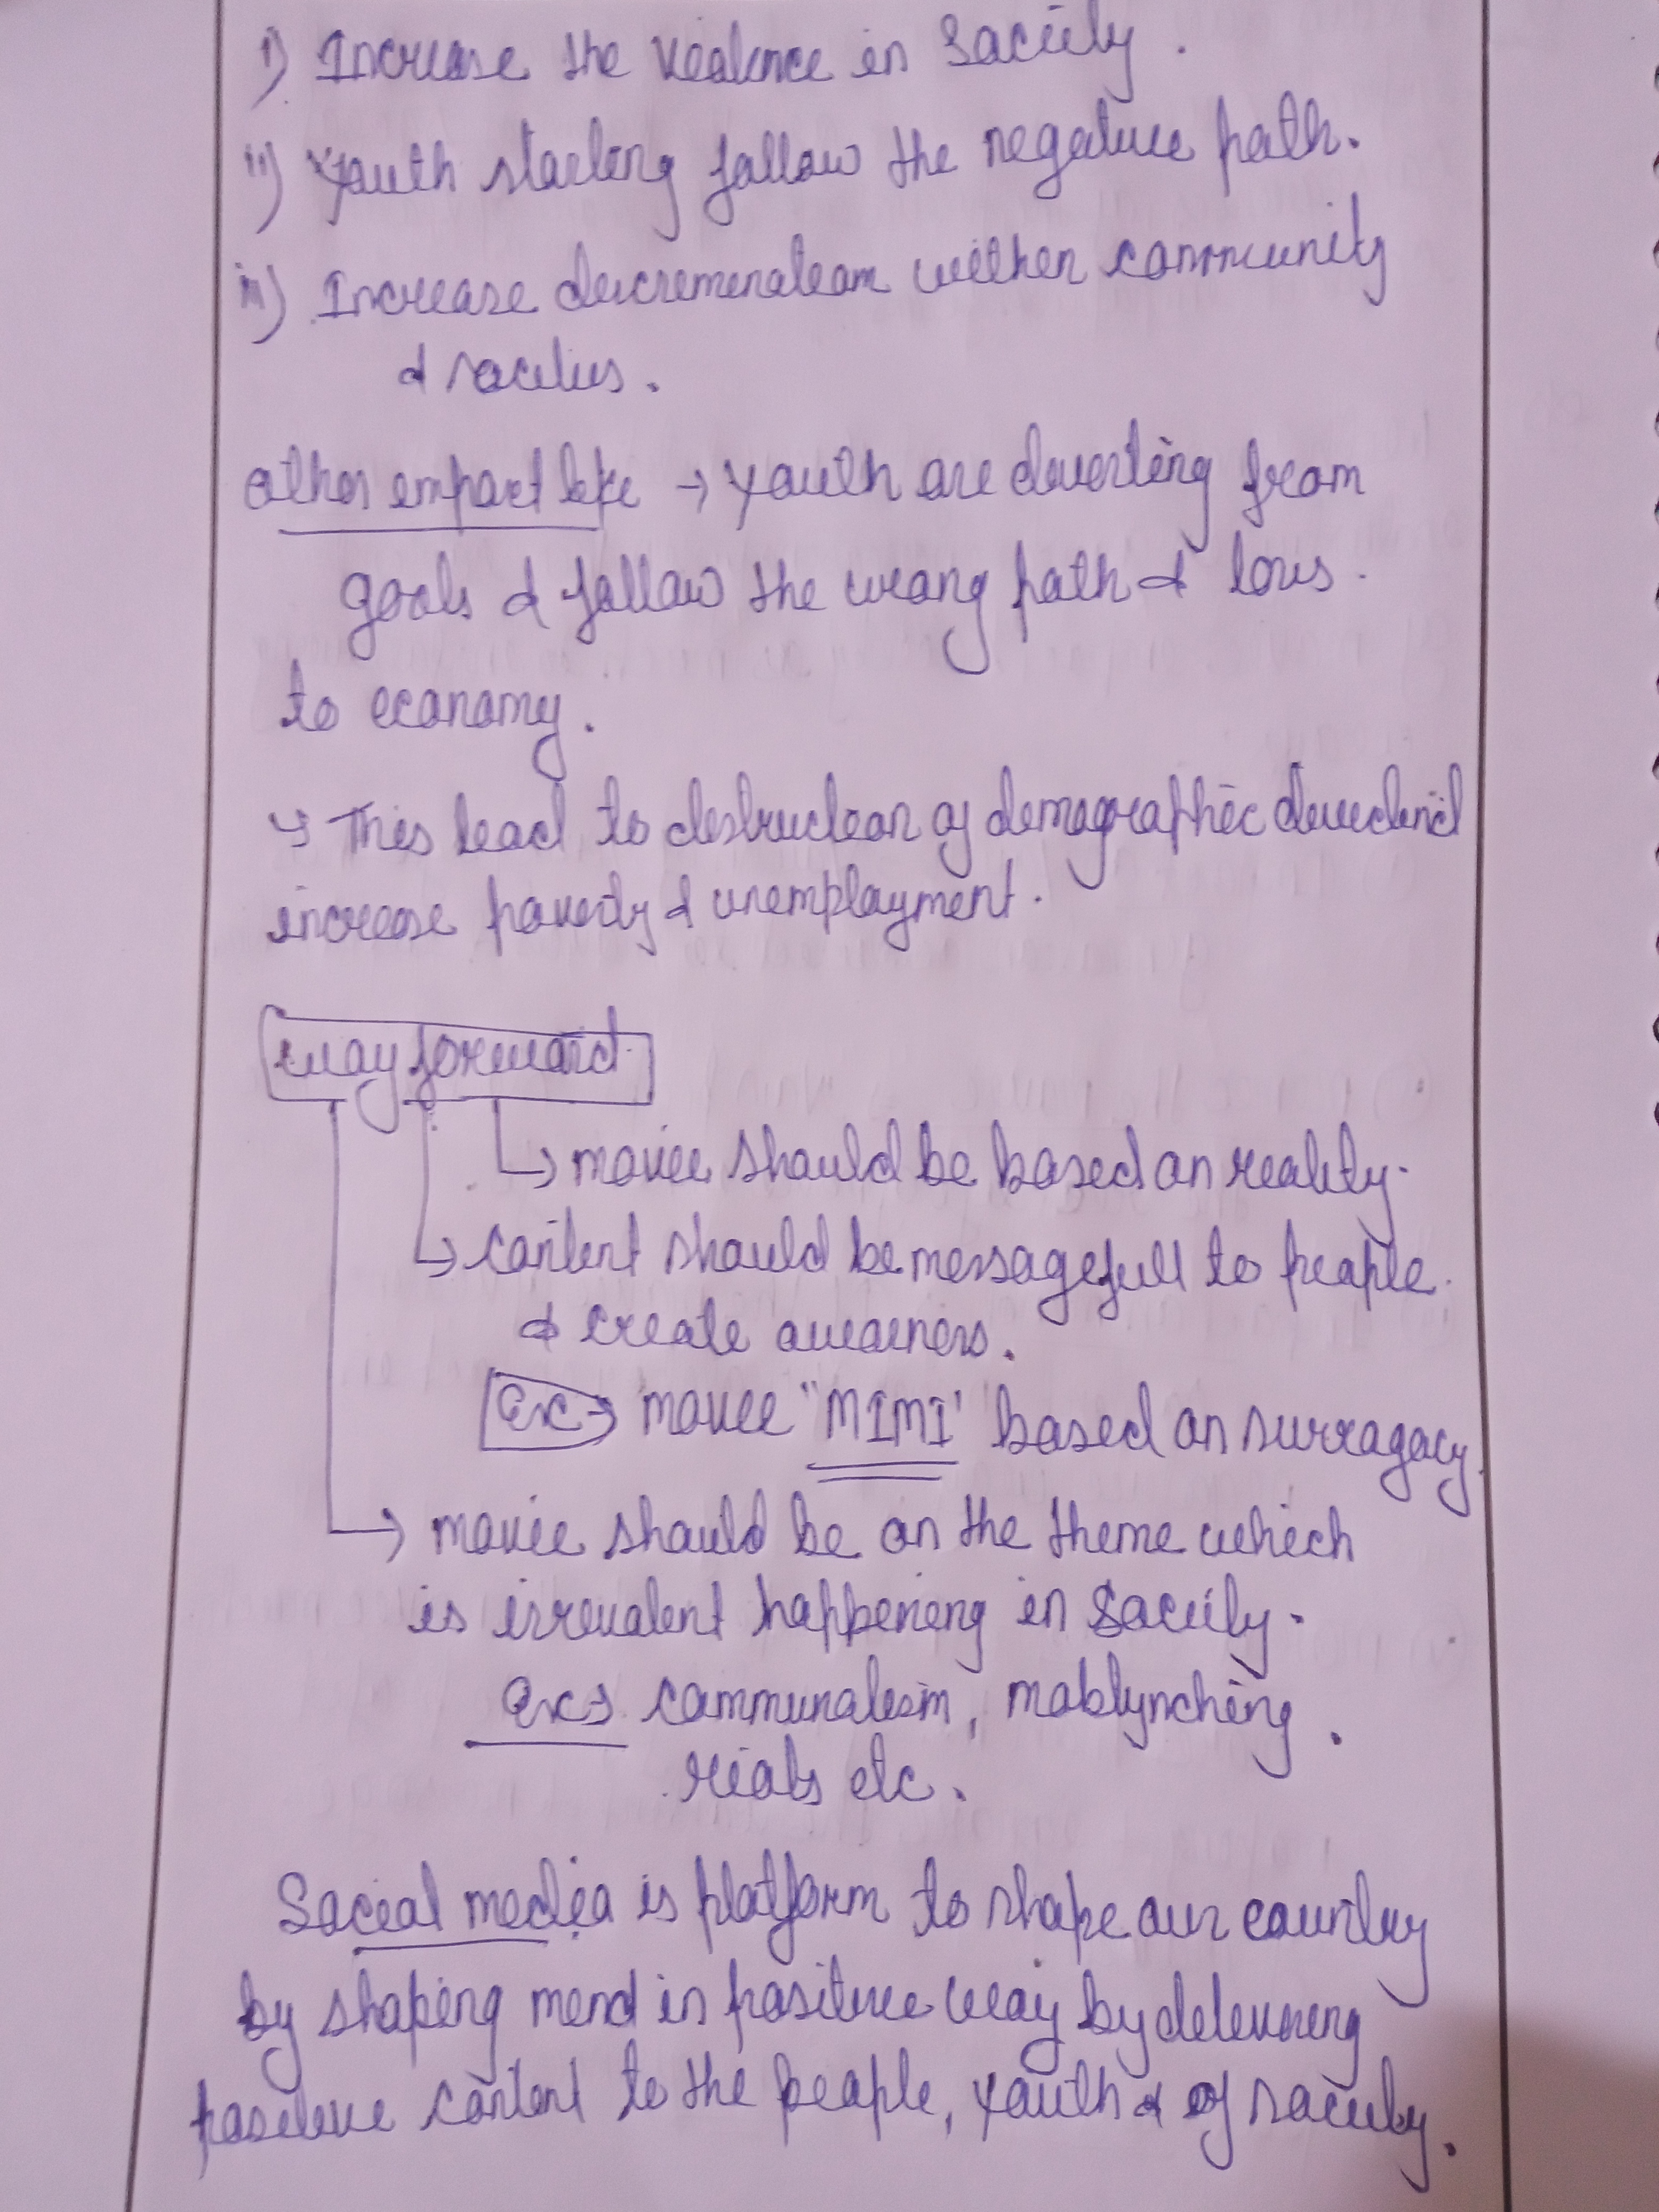 i) Increase the violence in Society.
ii) Youth starting follow the negative path.
iii) Increase discremination within community
& socities.
other impact like → Youth are diverting from
goals & follow the wrong path & loss
to economy.
↳ This lead to destruction of demographic dividend
increase poverty & unemployment.
way forward
↳ movie should be based on reality.
↳ content should be messagefull to people
& create awareness.
Ex→ movie "MIMI' based on surragacy.
→ movie should be on the theme which
is irrevalent happening in Society.
Ex→ communalism, moblynching,
riots etc.
Social media is platform to shape our country
by shaping mind in positive way by delevering
positive content to the people, Youth & of society.